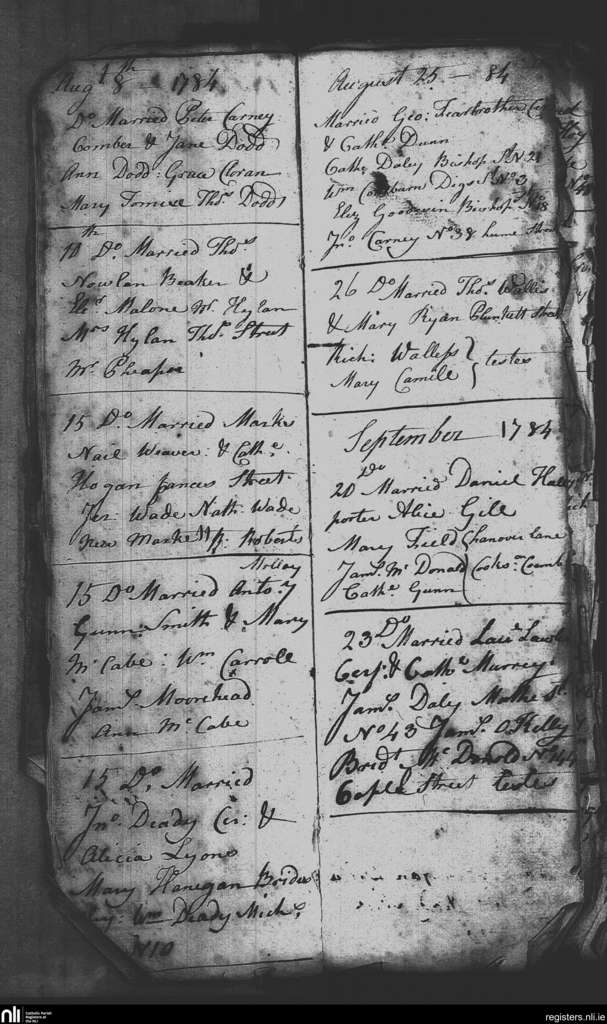 Augt 8th — 1784
Do Married Peter Carney
Comber & Jane Dodd
Ann Dodd: Grace Cloran
Mary Tomixe Thos Dodd
11th Do Married Thos
Nowlan Beaker &
Elizs Malone Mr Hylan
Mrs Hylan Thos Street
Mr
15 Do Married Marks
Nail Weaver: & Cathe
Hogan frances Street
Jer: Wade Nath: Wade
New Market Roberts
15 Do Married Anto:y
Gunn: Smith & Mary
McCabe: Wm Carroll
Jams Moorehead
Ann McCabe
15 Do Married
Jno: Deady &
Alicia Lyons
Mary Flanegan Brides
Wm Deady Mich:s
No 10
August 25 — 84
Married Geo: Fearbrother
& Cathe Dunn
Cathe Daley Bishop St No 21
Wm Digs St No 3
Eliz Goodwin Bishops No 18
Jno Carney No 38 hume Street
26 Do Married Thos Wallis
& Mary Ryan Plunkett Street
Rich: Wallis
Mary Camill } testes
September 1784
20 Do Married Daniel
porter Alice Gill
Mary Field hanover lane
Jams McDonald Cooks
Cathe Gunn
23 Do Married Law:
& Cathe Murrey
Jams Daley St
No 43 Jams O Kelly
Bridt McDonold No 44
Caple Street testes
nli Catholic Parish Registers at the NLI
registers.nli.ie